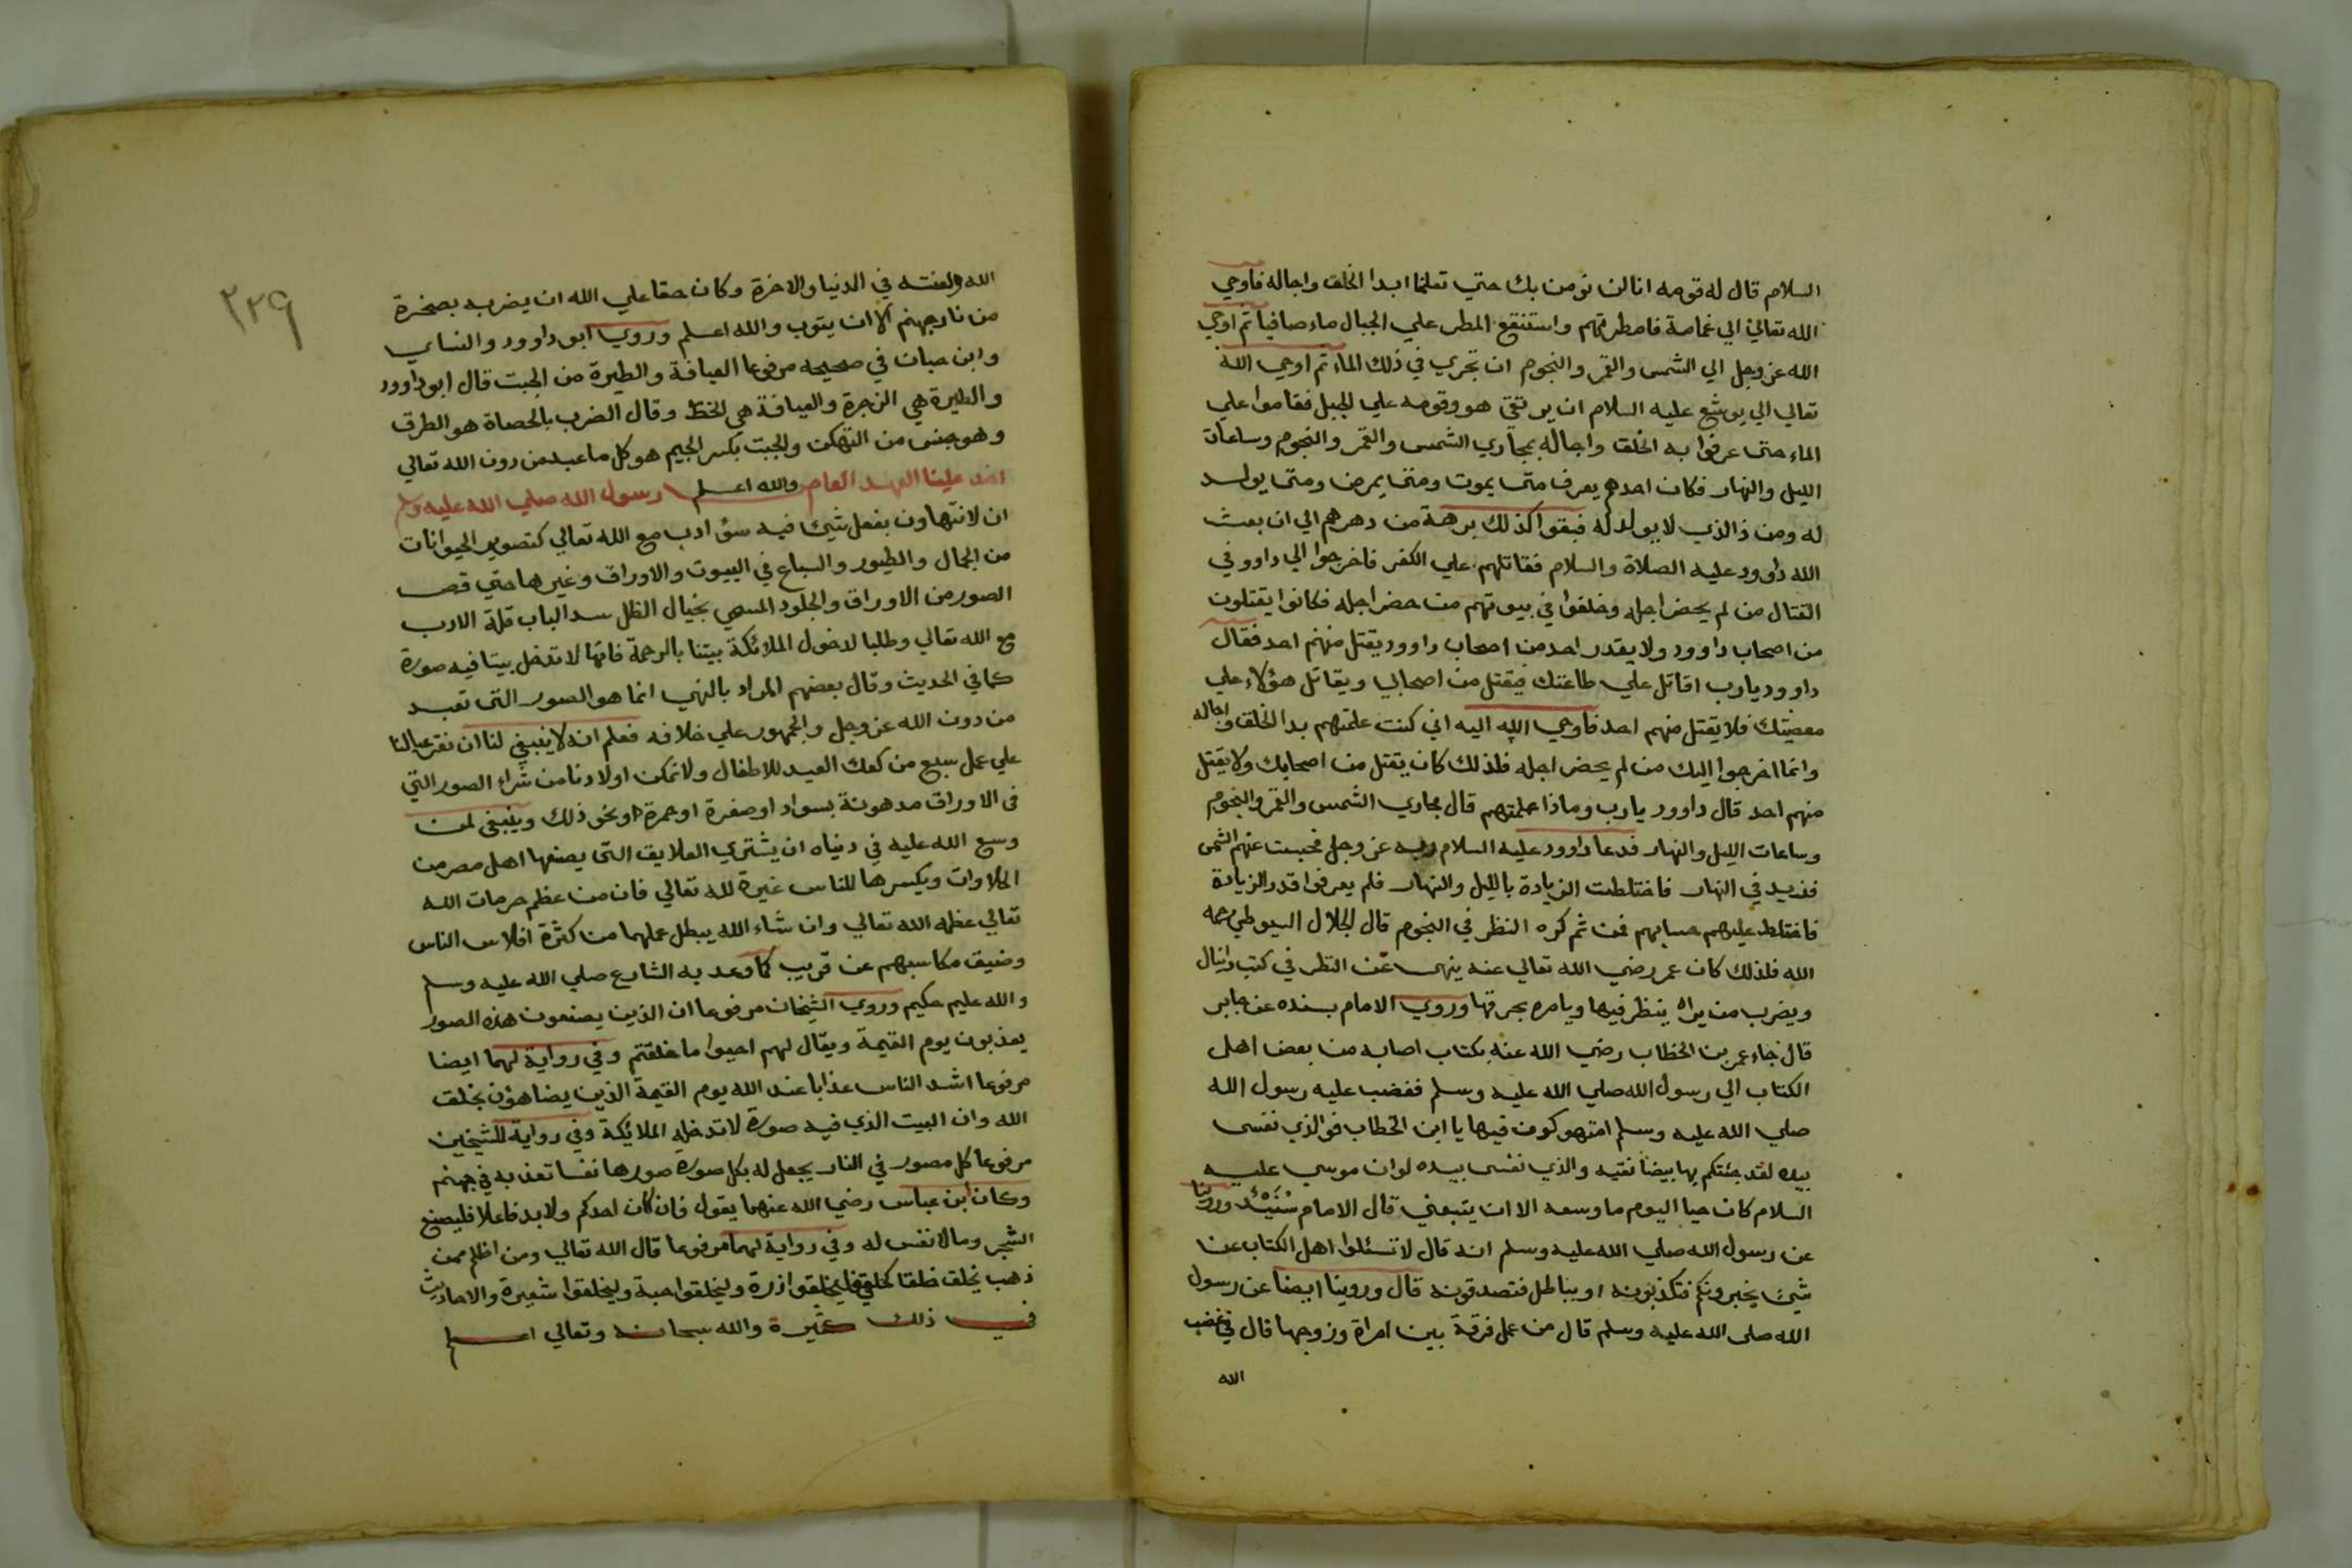 السلام قال له قومه انا لن نؤمن بك حتي تعلمنا ابدا الخلق واجاله فاوحي
الله تعالي الي غمامة فامطرتهم واستنقع المطر علي الجبال ماء صافيا ثم اوحي
الله عز وجل الي الشمس والقمر والنجوم ان تجري في ذلك الماء ثم اوحي الله
تعالي الي يوشع عليه السلام ان يرتقي هو وقومه علي الجبل فقاموا علي
الماء حتي عرفوا به الخلق واجاله بمجاري الشمس والقمر والنجوم وساعات
الليل والنهار فكان احدهم يعرف متي يموت ومتي يمرض ومتي يولد
له ومن ذا الذي لا يولد له فبقوا كذلك برهة من دهرهم الي ان بعث
الله داوود عليه الصلاة والسلام فقاتلهم علي الكفر فاخرجوا الي داوود في
القتال من لم يحضر اجله وخلفوا في بيوتهم من حضر اجله فكانوا يقتلون
من اصحاب داوود ولا يقدر احد من اصحاب داوود يقتل منهم احد فقال
داوود يارب اقاتل علي طاعتك فيقتل من اصحابي ويقاتل هؤلاء علي
معصيتك فلا يقتل منهم احد فاوحي الله اليه اني كنت علمتهم بدا الخلق واجاله
وانما اخرجوا اليك من لم يحضر اجله فلذلك كان يقتل من اصحابك ولا يقتل
منهم احد قال داوود يارب وماذا علمتهم قال مجاري الشمس والقمر والنجوم
وساعات الليل والنهار فدعا داوود عليه السلام ربه عز وجل فحبست عنهم الشمس
فزيد في النهار فاختلطت الزيادة بالليل والنهار فلم يعرفوا قدر الزيادة
فاختلط عليهم حسابهم فمن ثم كره النظر في النجوم قال الجلال السيوطي رحمه
الله فلذلك كان عمر رضي الله تعالي عنه ينهي عن النظر في كتب دانيال
ويضرب من يراه ينظر فيها ويامره بحرقها وروي الامام بسنده عن جابر
قال جاء عمر بن الخطاب رضي الله عنه بكتاب اصابه من بعض اهل
الكتاب الي رسول الله صلي الله عليه وسلم فغضب عليه رسول الله
صلي الله عليه وسلم امتهوكون فيها يا ابن الخطاب فوالذي نفسي
بيده لقد جئتكم بها بيضا نقيه والذي نفسي بيده لو ان موسي عليه
السلام كان حيا اليوم ما وسعه الا ان يتبعني قال الامام سُنَيْد وروينا
عن رسول الله صلي الله عليه وسلم انه قال لا تسئلوا اهل الكتاب عن
شيئ يخبرونكم فتكذبونه او بباطل فتصدقونه قال وروينا ايضا عن رسول
الله صلي الله عليه وسلم قال من عمل فرقة بين امراة وزوجها قال في غضب
الله
٢٢٩
الله ولعنته في الدنيا والاخرة وكان حقا علي الله ان يضربه بصخرة
من نار جهنم الا ان يتوب والله اعلم وروي ابو داوود والنساي
وابن حبان في صحيحه مرفوعا العيافة والطيرة من الجبت قال ابو داوود
والطيرة هي الزجرة والعيافة هي الخط وقال الضرب بالحصاة هو الطرق
وهو جنس من التهكن والجبت بكسر الجيم هو كل ما عبد من دون الله تعالي
اخذ علينا العهد العام والله اعلم رسول الله صلي الله عليه وسلم
ان لا نتهاون بفعل شيئ فيه سؤ ادب مع الله تعالي كتصوير الحيوانات
من الجمال والطيور والسباع في البيوت والاوراق وغيرها حتي قص
الصور من الاوراق والجلود المسمي بخيال الظل سد الباب قلة الادب
مع الله تعالي وطلبا لدخول الملائكة بيتنا بالرحمة فانها لا تدخل بيتا فيه صورة
كما في الحديث وقال بعضهم المراد بالنهي انما هو الصور التي تعبد
من دون الله عز وجل والجمهور علي خلافه فعلم انه لا ينبغي لنا ان نقر عيالنا
علي عمل سبع من كعك العيد للاطفال ولا نمكن اولادنا من شراء الصور التي
في الاوراق مدهونة بسواد او صفرة او حمرة او نحو ذلك وينبغي لمن
وسع الله عليه في دنياه ان يشتري العلايق التي يصنعها اهل مصر من
الحلاوات ويكسرها للناس غيرة لله تعالي فان من عظم حرمات الله
تعالي عظمه الله تعالي وان شاء الله يبطل عملهما من كثرة افلاس الناس
وضيق مكاسبهم عن قريب كما وعد به الشارع صلي الله عليه وسلم
والله عليم حكيم وروي الشيخان مرفوعا ان الذين يصنعون هذه الصور
يعذبون يوم القيمة ويقال لهم احيوا ما خلقتم وفي رواية لهما ايضا
مرفوعا اشد الناس عذابا عند الله يوم القيمة الذين يضاهؤن بخلق
الله وان البيت الذي فيه صورة لا تدخله الملائكة وفي رواية للشيخين
مرفوعا كل مصور في النار يجعل له بكل صورة صورها نفسا تعذبه في جهنم
وكان ابن عباس رضي الله عنهما يقول فان كان احدكم ولا بد فاعلا فليصنع
الشجر وما لا نفس له وفي رواية لهما مرفوعا قال الله تعالي ومن اظلم ممن
ذهب يخلق خلقا كخلقي فليخلقوا ذرة وليخلقوا حبة وليخلقوا شعيرة والاحاديث
في ذلك كثيرة والله سبحانه وتعالي اعلم